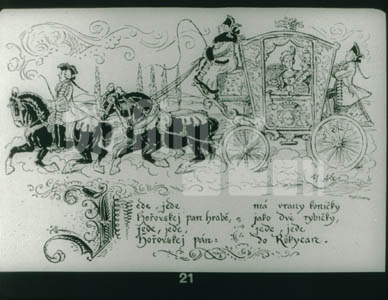 Jede, jede
hořovskej pan hrabě,
jede, jede,
hořovskej pán:
má vrany koničky
jako dvě rybičky,
jede, jede
do Rokycan.
21